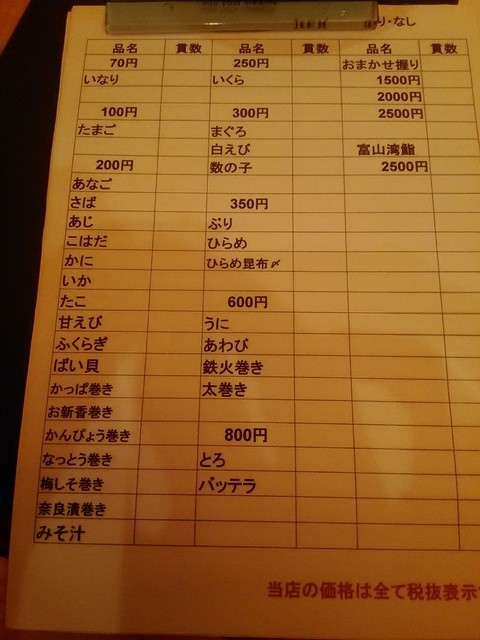 into your lifetime
り・なし
品名 貫数 品名 貫数 品名 貫数
70円 250円 おまかせ握り
いなり いくら 1500円
2000円
100円 300円 2500円
たまご まぐろ
白えび 富山湾鮨
200円 数の子 2500円
あなご
さば 350円
あじ ぶり
こはだ ひらめ
かに ひらめ昆布〆
いか
たこ 600円
甘えび うに
ふくらぎ あわび
ばい貝 鉄火巻き
かっぱ巻き 太巻き
お新香巻き
かんぴょう巻き 800円
なっとう巻き とろ
梅しそ巻き バッテラ
奈良漬巻き
みそ汁
当店の価格は全て税抜表示